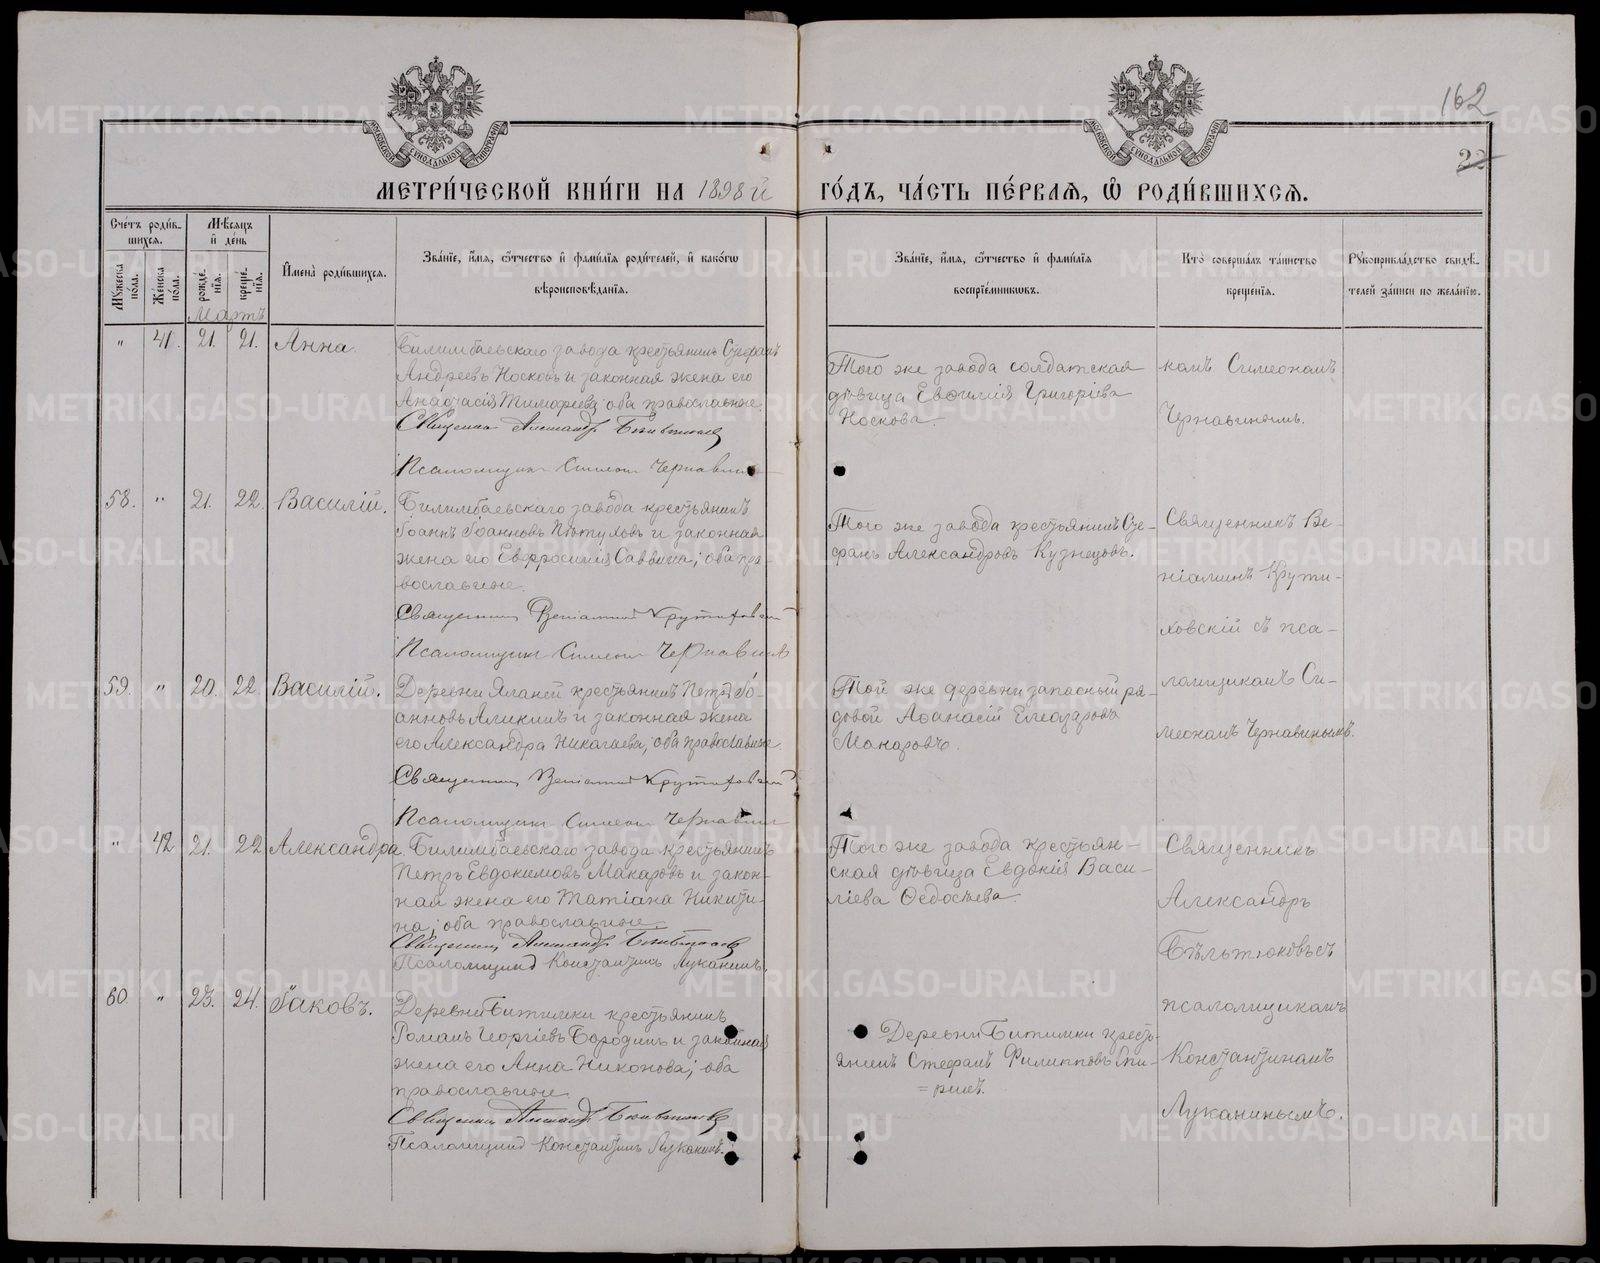 162
22
МОСКОВСКОЙ СѴНОДАЛЬНОЙ ТИПОГРАФІИ
МОСКОВСКОЙ СѴНОДАЛЬНОЙ ТИПОГРАФІИ
МЕТРИ́ЧЕСКОЙ КНИ́ГИ НА 1898 й ГО́ДЪ, ЧА́СТЬ ПЕ́РВАѦ, Ѡ҆ РОДИ́ВШИХСѦ.
Сче́тъ роди́в-
шихся.
Мꙋжеска по́ла.
Же́нска по́ла.
Мѣ́сѧцъ и҆ де́нь
рожде́нїѧ.
креще́нїѧ.
И҆мена̀ роди́вшихсѧ.
Зва́нїе, и҆́мѧ, ѻ҆́тчество и҆ фами́лїѧ роди́телей, и҆ како́гѡ
вѣроисповѣ́данїѧ.
Зва́нїе, и҆́мѧ, ѻ҆́тчество и҆ фами́лїѧ
воспрїе́мникѡвъ.
Кто̀ соверша́лъ та́инство
креще́нїѧ.
Рꙋкоприкла́дство свидѣ́-
телей за́писи по жела́нїю.
Мартъ
" 41. 21. 21. Анна.
Билимбаевскаго завода крестьянинъ Стефанъ
Андреевъ Носковъ и законная жена его
Анастасія Тимофеева; оба православные.
Священник Александр
Псаломщик Симеон Чернавин
Того же завода солдатская
дѣвица Евфимія Григоріева
Носкова.
комъ Симеономъ
Чернавинымъ.
58. " 21. 22. Василій.
Билимбаевскаго завода крестьянинъ
Іоаннъ Іоанновъ Пѣтуховъ и законная
жена его Евфросинія Саввина; оба пра-
вославные.
Священник Веніамин Крутиховский
Псаломщик Симеон Чернавин
Того же завода крестьянинъ Сте-
фанъ Александровъ Кузнецовъ.
Священникъ Ве-
ніаминъ Крути-
ховскій съ пса-
ломщикомъ Си-
меономъ Чернавинымъ.
59. " 20. 22. Василій.
Деревни крестьянинъ Петръ Іо-
анновъ Аликинъ и законная жена
его Александра Никитаева; оба православные.
Священник Веніамин Крутиховский
Псаломщик Симеон Чернавин
Той же деревни запасный ря-
довой Афанасій Елеазаровъ
Макаровъ.
" 42 21. 22 Александра
Билимбаевскаго завода крестьянинъ
Петръ Евдокимовъ Макаровъ и закон-
ная жена его Татіана Никити-
на; оба православные.
Священник Александр
Псаломщикъ Константинъ Луканинъ.
Того же завода крестьян-
ская дѣвица Евдокія Васи-
ліева Ѳедосѣева.
Священникъ
Александръ
Бѣльтюковъ съ
псаломщикомъ
Константиномъ
Луканинымъ.
60. " 23. 24. Іаковъ.
Деревни Битимки крестьянинъ
Романъ Георгіевъ Бородинъ и законная
жена его Анна Никонова; оба
православные.
Священник Александр
Псаломщикъ Константинъ Луканинъ.
Деревни Битимки кресть-
янинъ Стефанъ Филипповъ Спи-
=ринъ.
METRIKI.GASO-URAL.RU